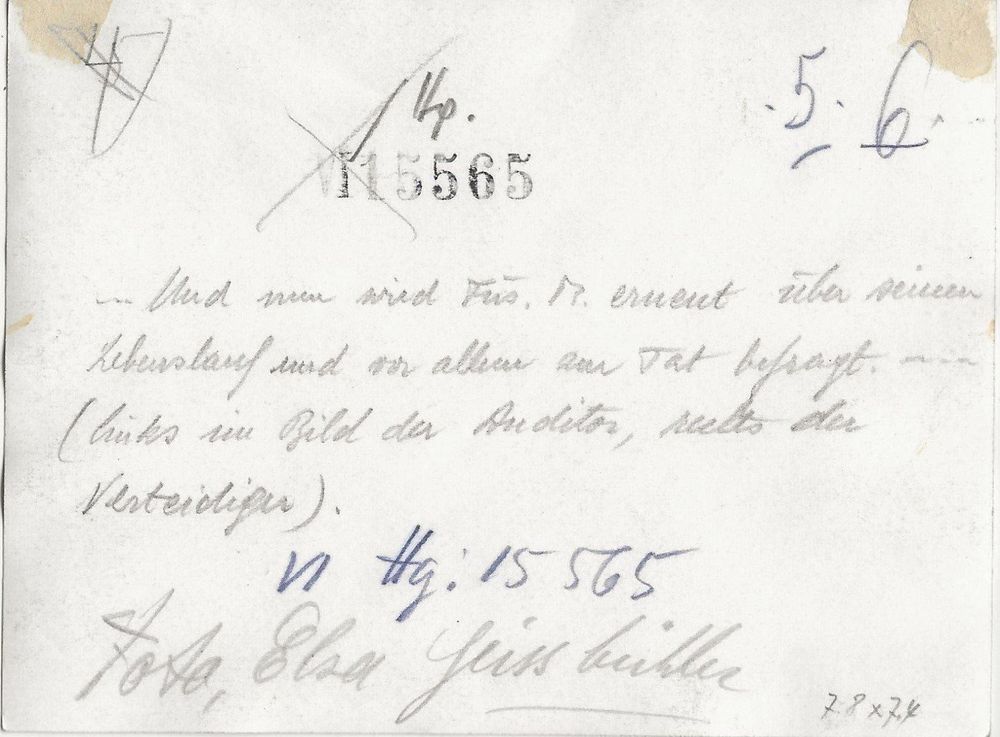 Hp.
5. 6
VI 15565
... Und nun wird Füs. M. erneut über seinen
Lebenslauf und vor allem zur Tat befragt. ....
(links im Bild der Auditor, rechts der
Verteidiger).
VI Hg: 15 565
Foto, Elsa Geissbühler
7.8 x 7,4